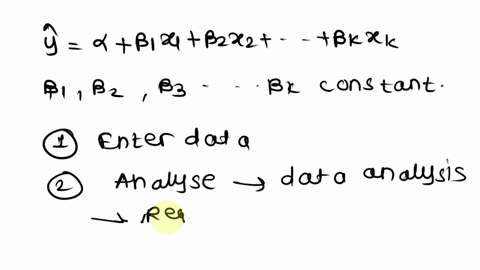 ŷ = α + β1x1 + β2x2 + - - + βkxk
β1, β2, β3 - - - βk constant.
① Enter data
② Analyse → data analysis
→ Reg